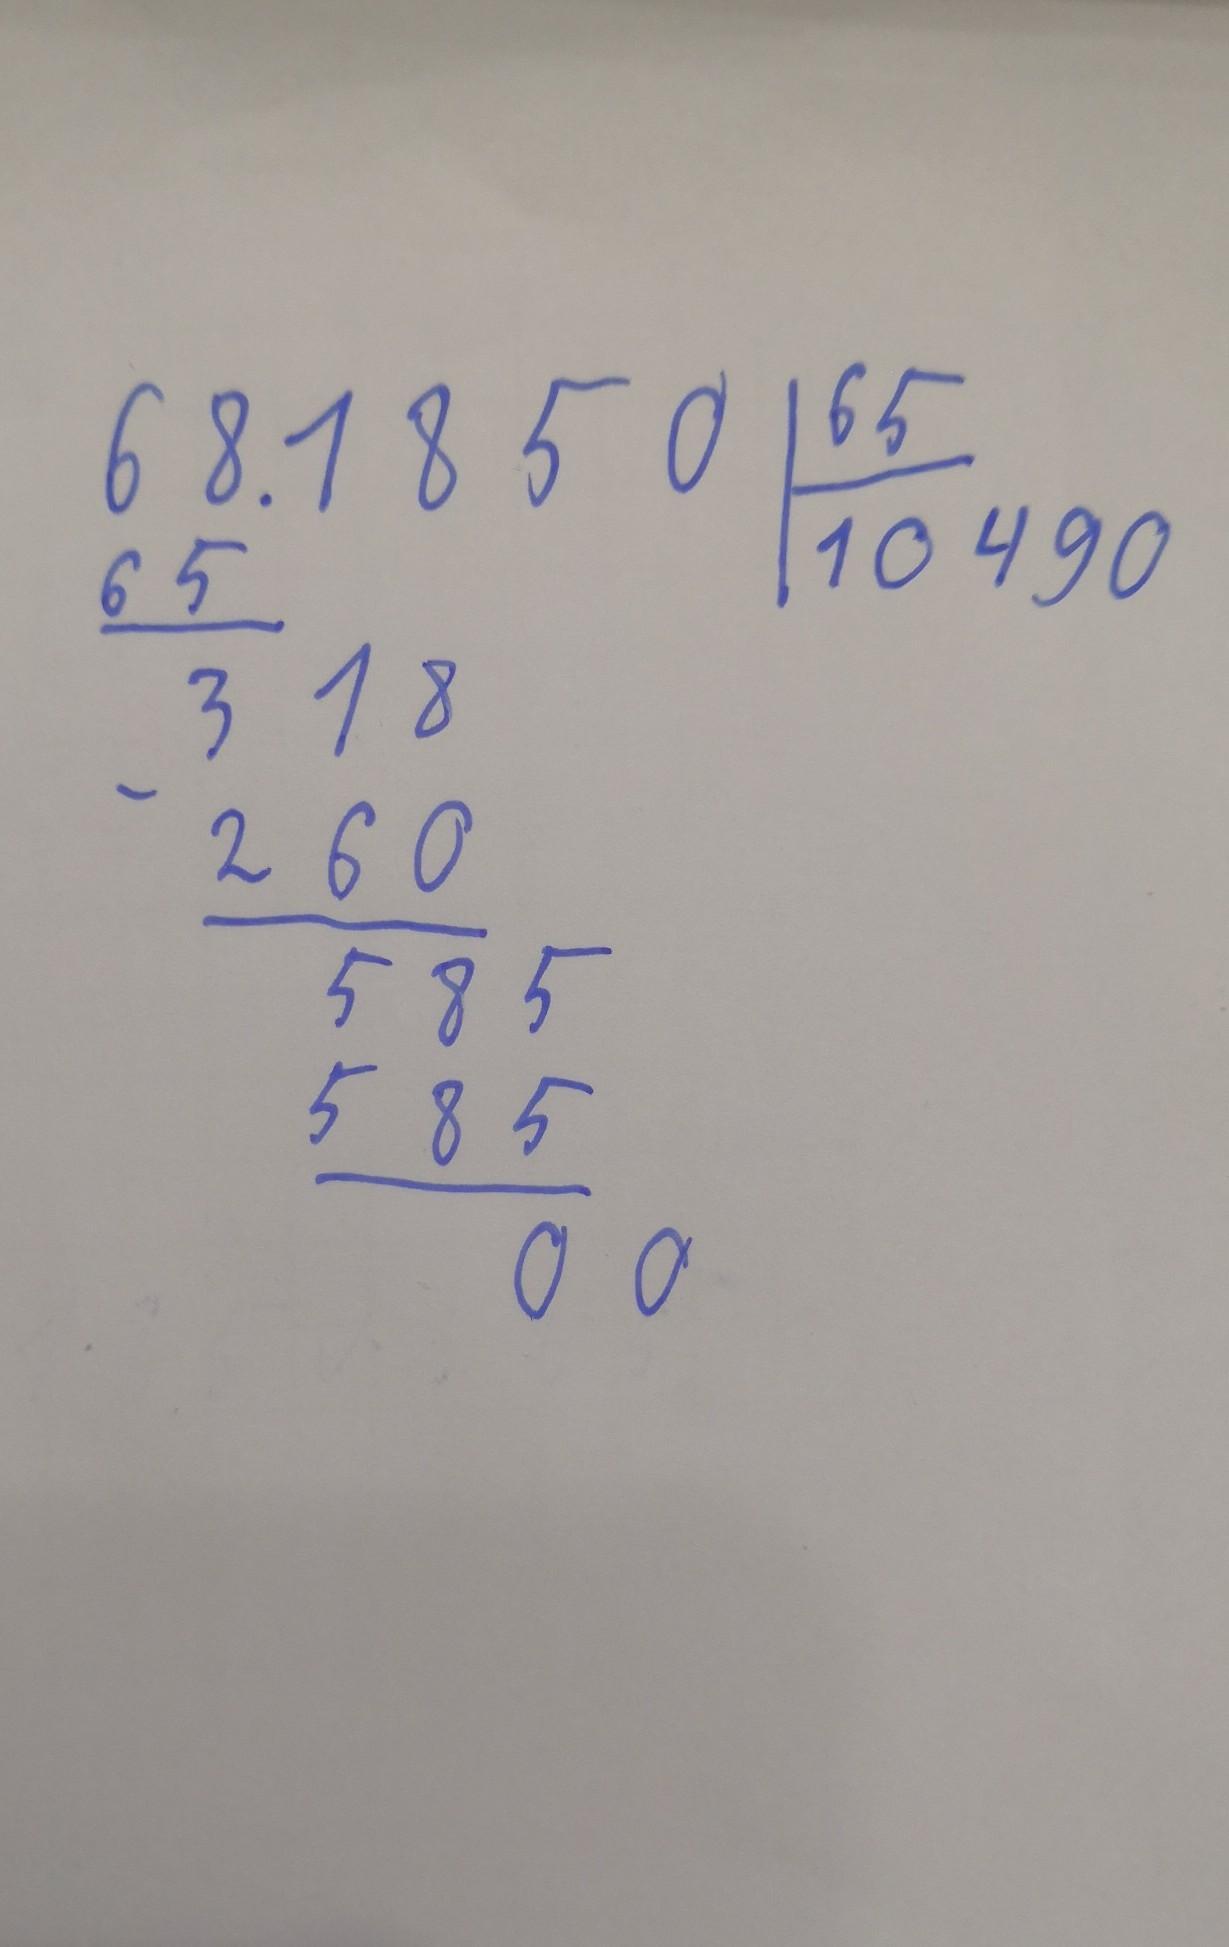 68.1850 65
10490
65
318
-
260
585
585
00